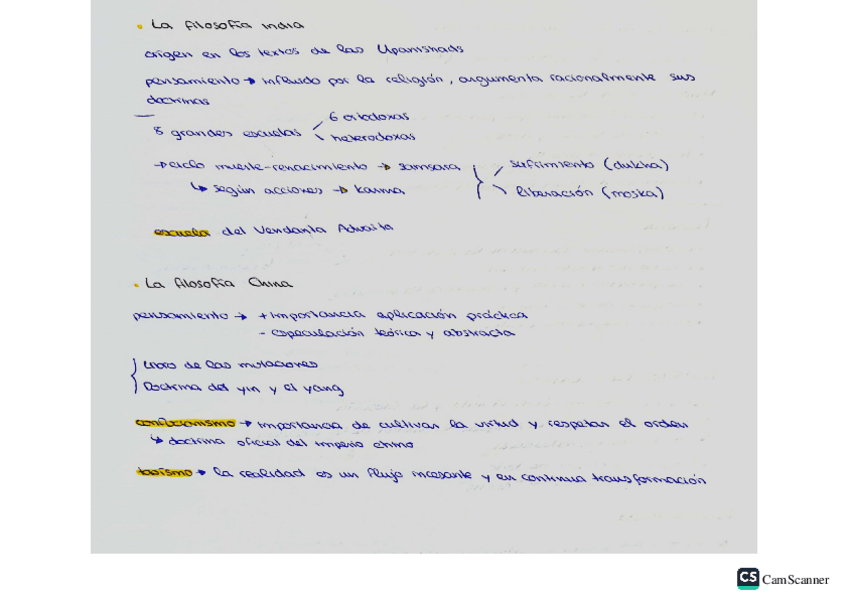 • La filosofía india
origen en los textos de las Upanishads
pensamiento → influido por la religión, argumenta racionalmente sus
doctrinas
8 grandes escuelas
6 ortodoxas
heterodoxas
→ ciclo muerte-renacimiento → samsara
↳ según acciones → karma
sufrimiento (dukha)
liberación (moska)
escuela del Vendanta Advaita
• La filosofía China
pensamiento → + importancia aplicación práctica
- especulación teórica y abstracta
Libro de las mutaciones
Doctrina del yin y el yang
confucionismo → importancia de cultivar la virtud y respetar el orden
↳ doctrina oficial del imperio chino
taoísmo → la realidad es un flujo incesante y en continua transformación
CS CamScanner